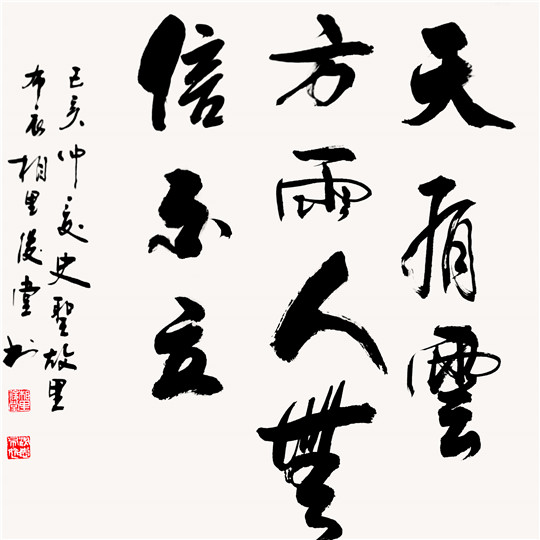 天有雲
方雨人無
信不立
己亥仲夏史聖故里
布衣相里後堂书